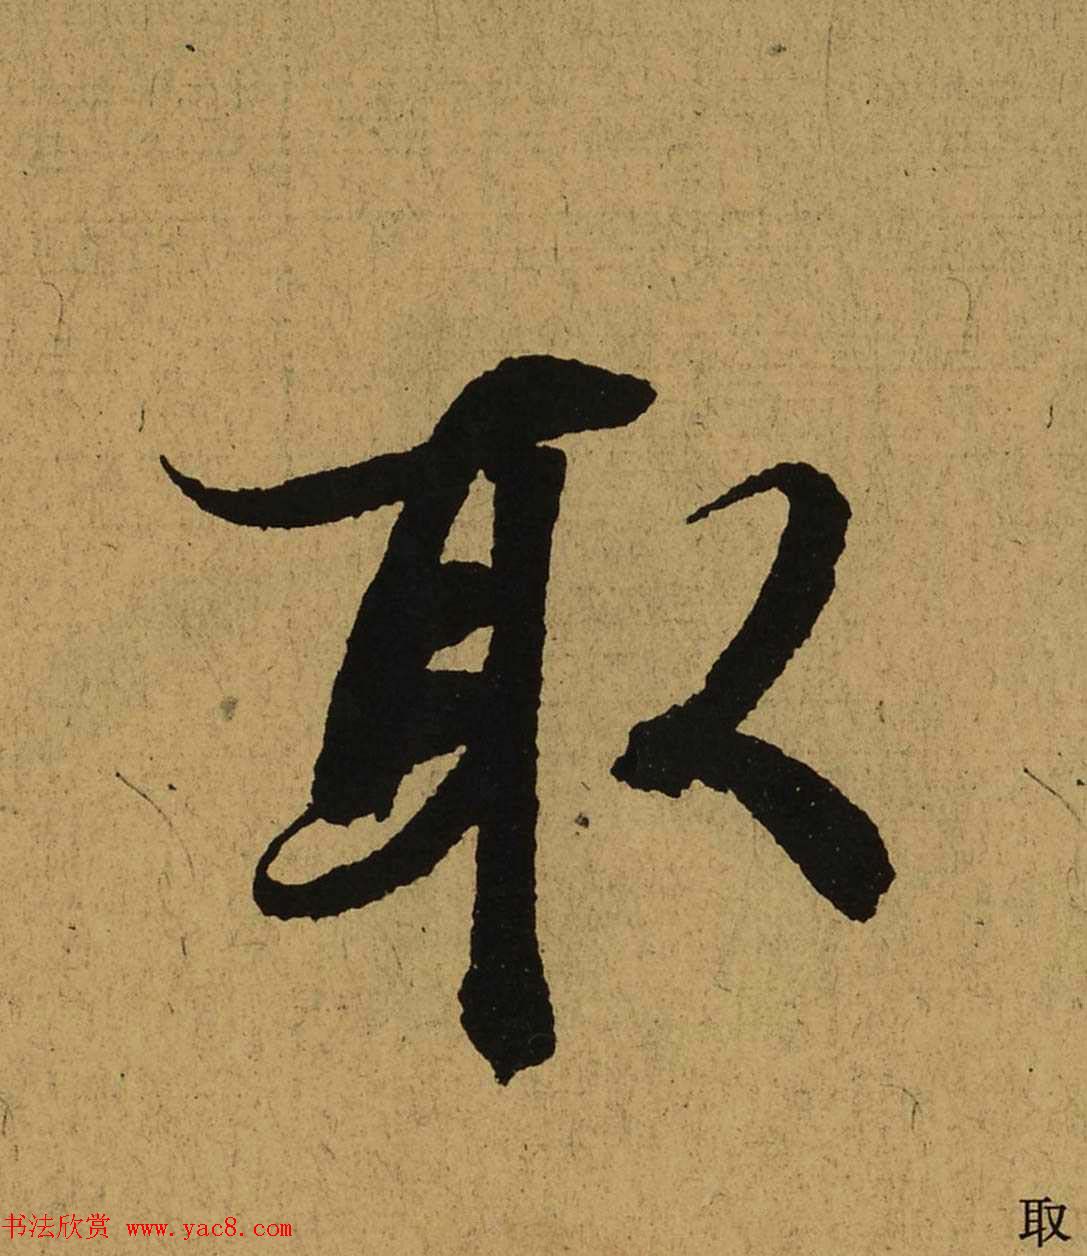 取
书法欣赏 www.yac8.com
取